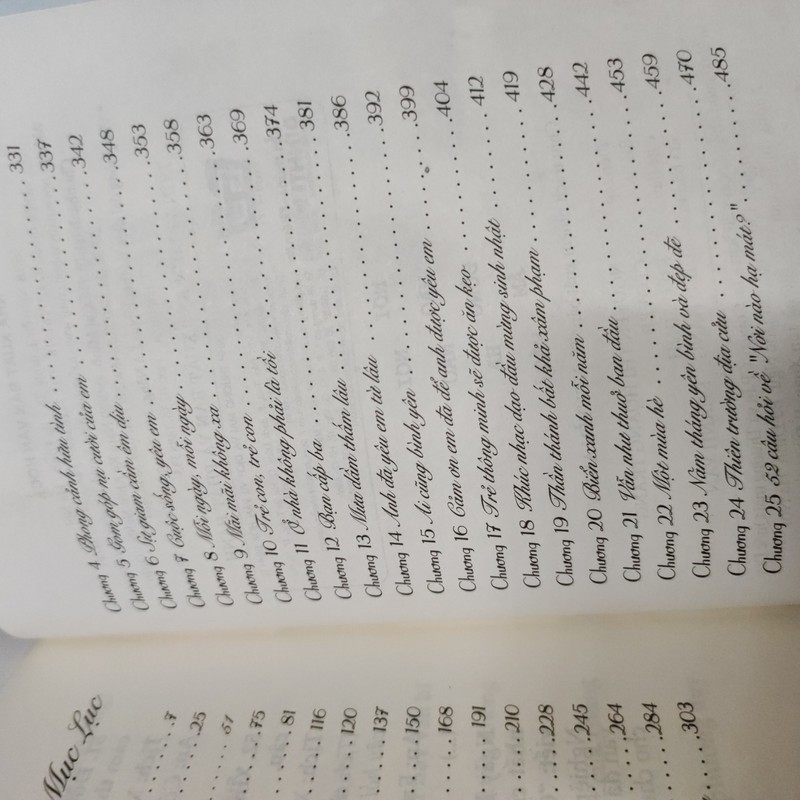 Mục Lục
.....7
.....25
.....
.....75
.....81
.....116
.....120
.....137
.....150
.....168
.....191
.....210
.....228
.....245
.....264
.....284
.....303
Chương 4 Phong cảnh hữu tình ..........331
Chương 5 Gom góp nụ cười của em ..........337
Chương 6 Sự giam cầm êm dịu ..........342
Chương 7 Cuộc sống, yêu em ..........348
Chương 8 Mỗi ngày, mỗi ngày ..........353
Chương 9 Mãi mãi không xa ..........358
Chương 10 Trẻ con, trẻ con ..........363
Chương 11 Ở nhà không phải là tồi ..........369
Chương 12 Bạn cấp ba ..........374
Chương 13 Mưa dầm thấm lâu ..........381
Chương 14 Anh đã yêu em từ lâu ..........386
Chương 15 Ai cũng bình yên ..........392
Chương 16 Cảm ơn em đã để anh được yêu em ..........399
Chương 17 Trẻ thông minh sẽ được ăn kẹo ..........404
Chương 18 Khúc nhạc dạo đầu mừng sinh nhật ..........412
Chương 19 Thần thánh bất khả xâm phạm ..........419
Chương 20 Biển xanh mỗi năm ..........428
Chương 21 Vẫn như thuở ban đầu ..........442
Chương 22 Một mùa hè ..........453
Chương 23 Năm tháng yên bình và đẹp đẽ ..........459
Chương 24 Thiên trường địa cửu ..........470
Chương 25 52 câu hỏi về "Nơi nào hạ mát?"..........485